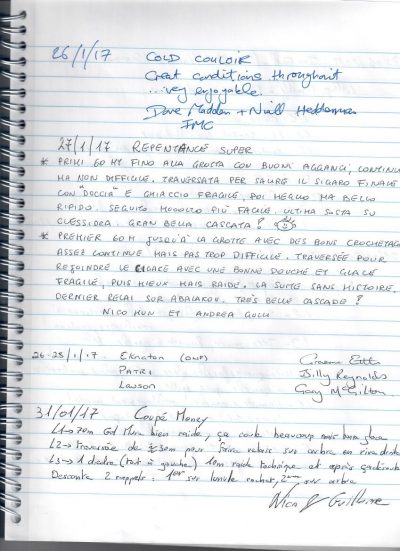 26/1/17 COLD COULOIR
Great conditions throughout
...very enjoyable.
Dave Madden + Niall Hedderman
IMC
27/1/17 REPENTANCE SUPER
* PRIMI 60 MT FINO ALLA GROTTA CON BUONI AGGANCI, CONTINUA
MA NON DIFFICILE. TRAVERSATA PER SALIRE IL SIGARO FINALE
CON "DOCCIA" E GHIACCIO FRAGILE, POI MEGLIO MA BELLO
RIPIDO. SEGUITO MOLTO PIÙ FACILE. ULTIMA SOSTA SU
CLESSIDRA. GRAN BELLA CASCATA!
* PREMIER 60M JUSQU'À LA GROTTE AVEC DES BONS CROCHETAGE
ASSER CONTINUE MAIS PAS TROP DIFFICILE. TRAVERSÉE POUR
REJOINDRE LE CIGARE AVEC UNE BONNE DOUCHE ET GLACE
FRAGILE, PUIS MIEUX MAIS RAIDE. LA SUITE SANS HISTOIRE.
DERNIER RELAI SUR ABALAKOV. TRÈS BELLE CASCADE!
NICO ET ANDREA
26-28/1/17 EKnaton
PATRI Billy Reynolds
Lawson Gary McGilton
31/01/17 Coupé Money
L1→ 70m bien raide, ça coule beaucoup mais bonne glace
L2→ traversée de 30m pour faire relais sur arbre en rive droite
L3→ 1 dièdre (tout à gauche) 10m raide technique et après
Descente 2 rappels: 1er sur lunule rocher, 2ème sur arbre
Nico & Guillaume